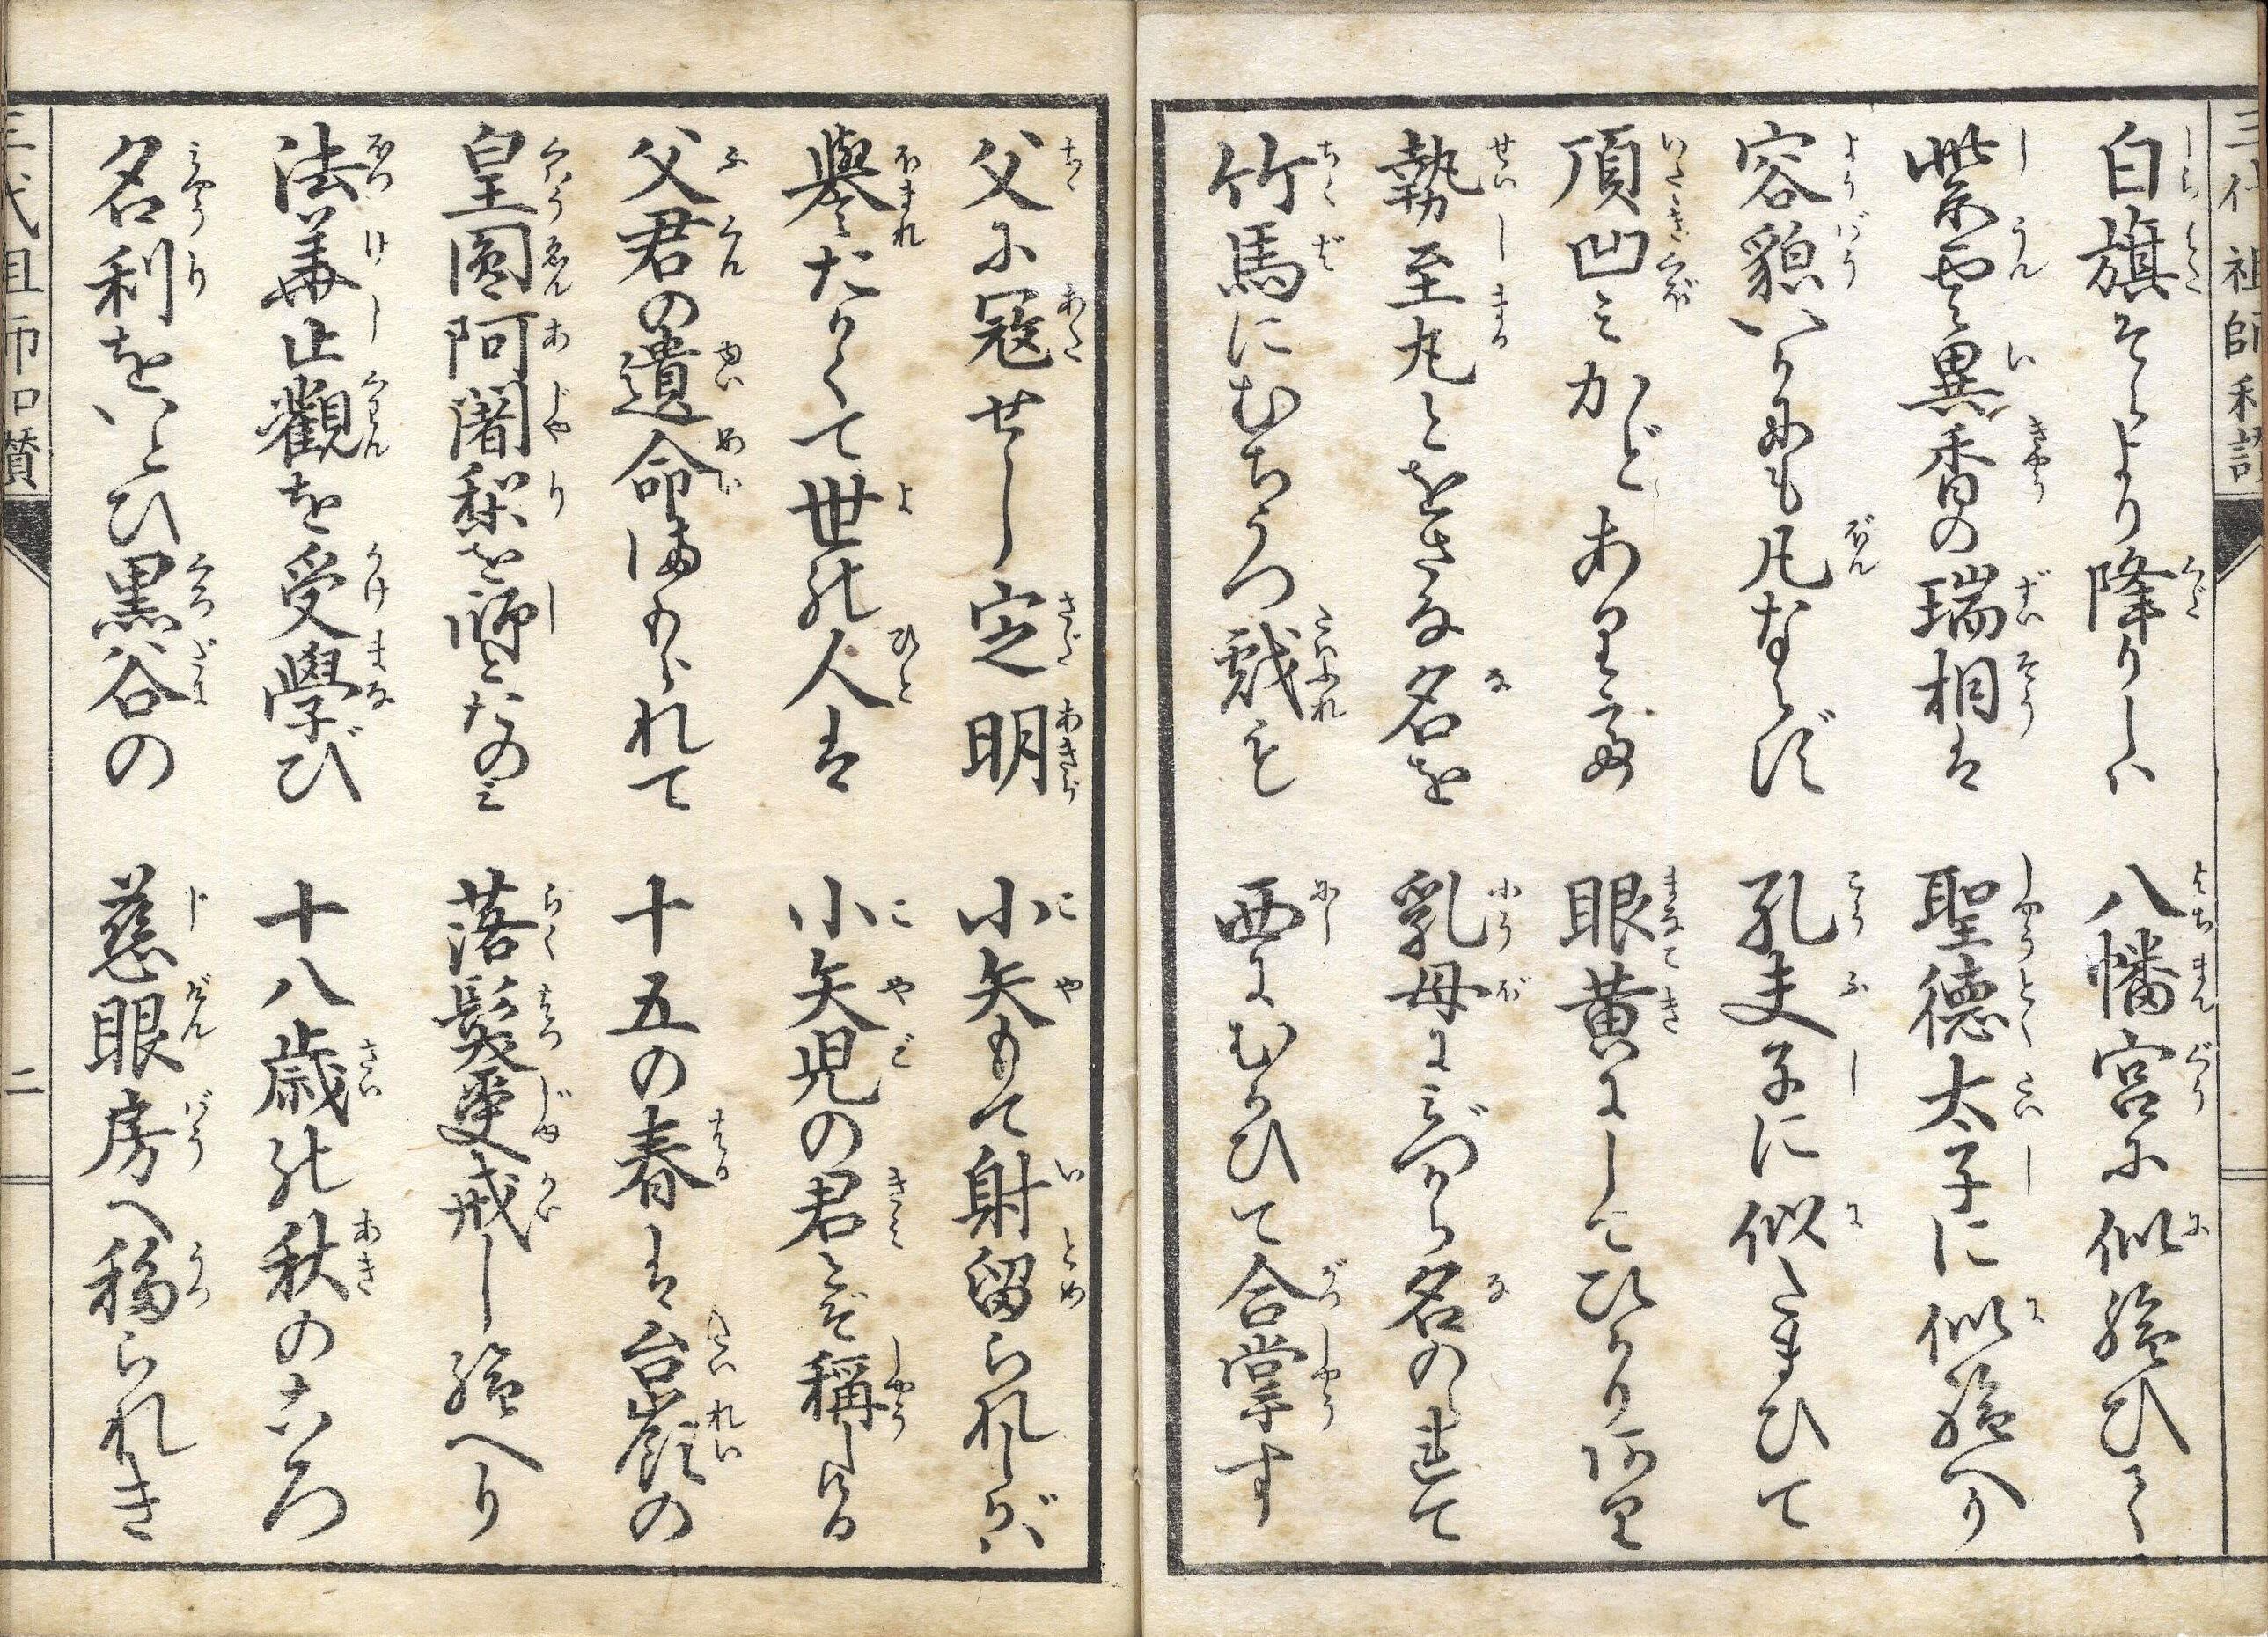 三代祖師和讃
白旗そらより降りしハ　八幡宮に似給ひて
紫雲異香の瑞相は　聖德太子に似給へり
容貌いかにも凡ならず　孔夫子に似たまひて
頂凹ミかどありて　眼黄にしてひかりあり
勢至丸とをさな名を　乳母にミづから名のらせて
竹馬にむちうつ戯も　西にむかひて合掌す
父に寇せし定明　小矢もて射留られしかバ
譽たかくて世の人は　小矢児の君とぞ稱しける
父君の遺命によられて　十五の春は台嶺の
皇圓阿闍梨を師とたのミ　落髮受戒し給へり
法華止觀を受學び　十八歳の秋のころ
名利をいとひ黒谷の　慈眼房へ移られき
三代祖師和讃
二